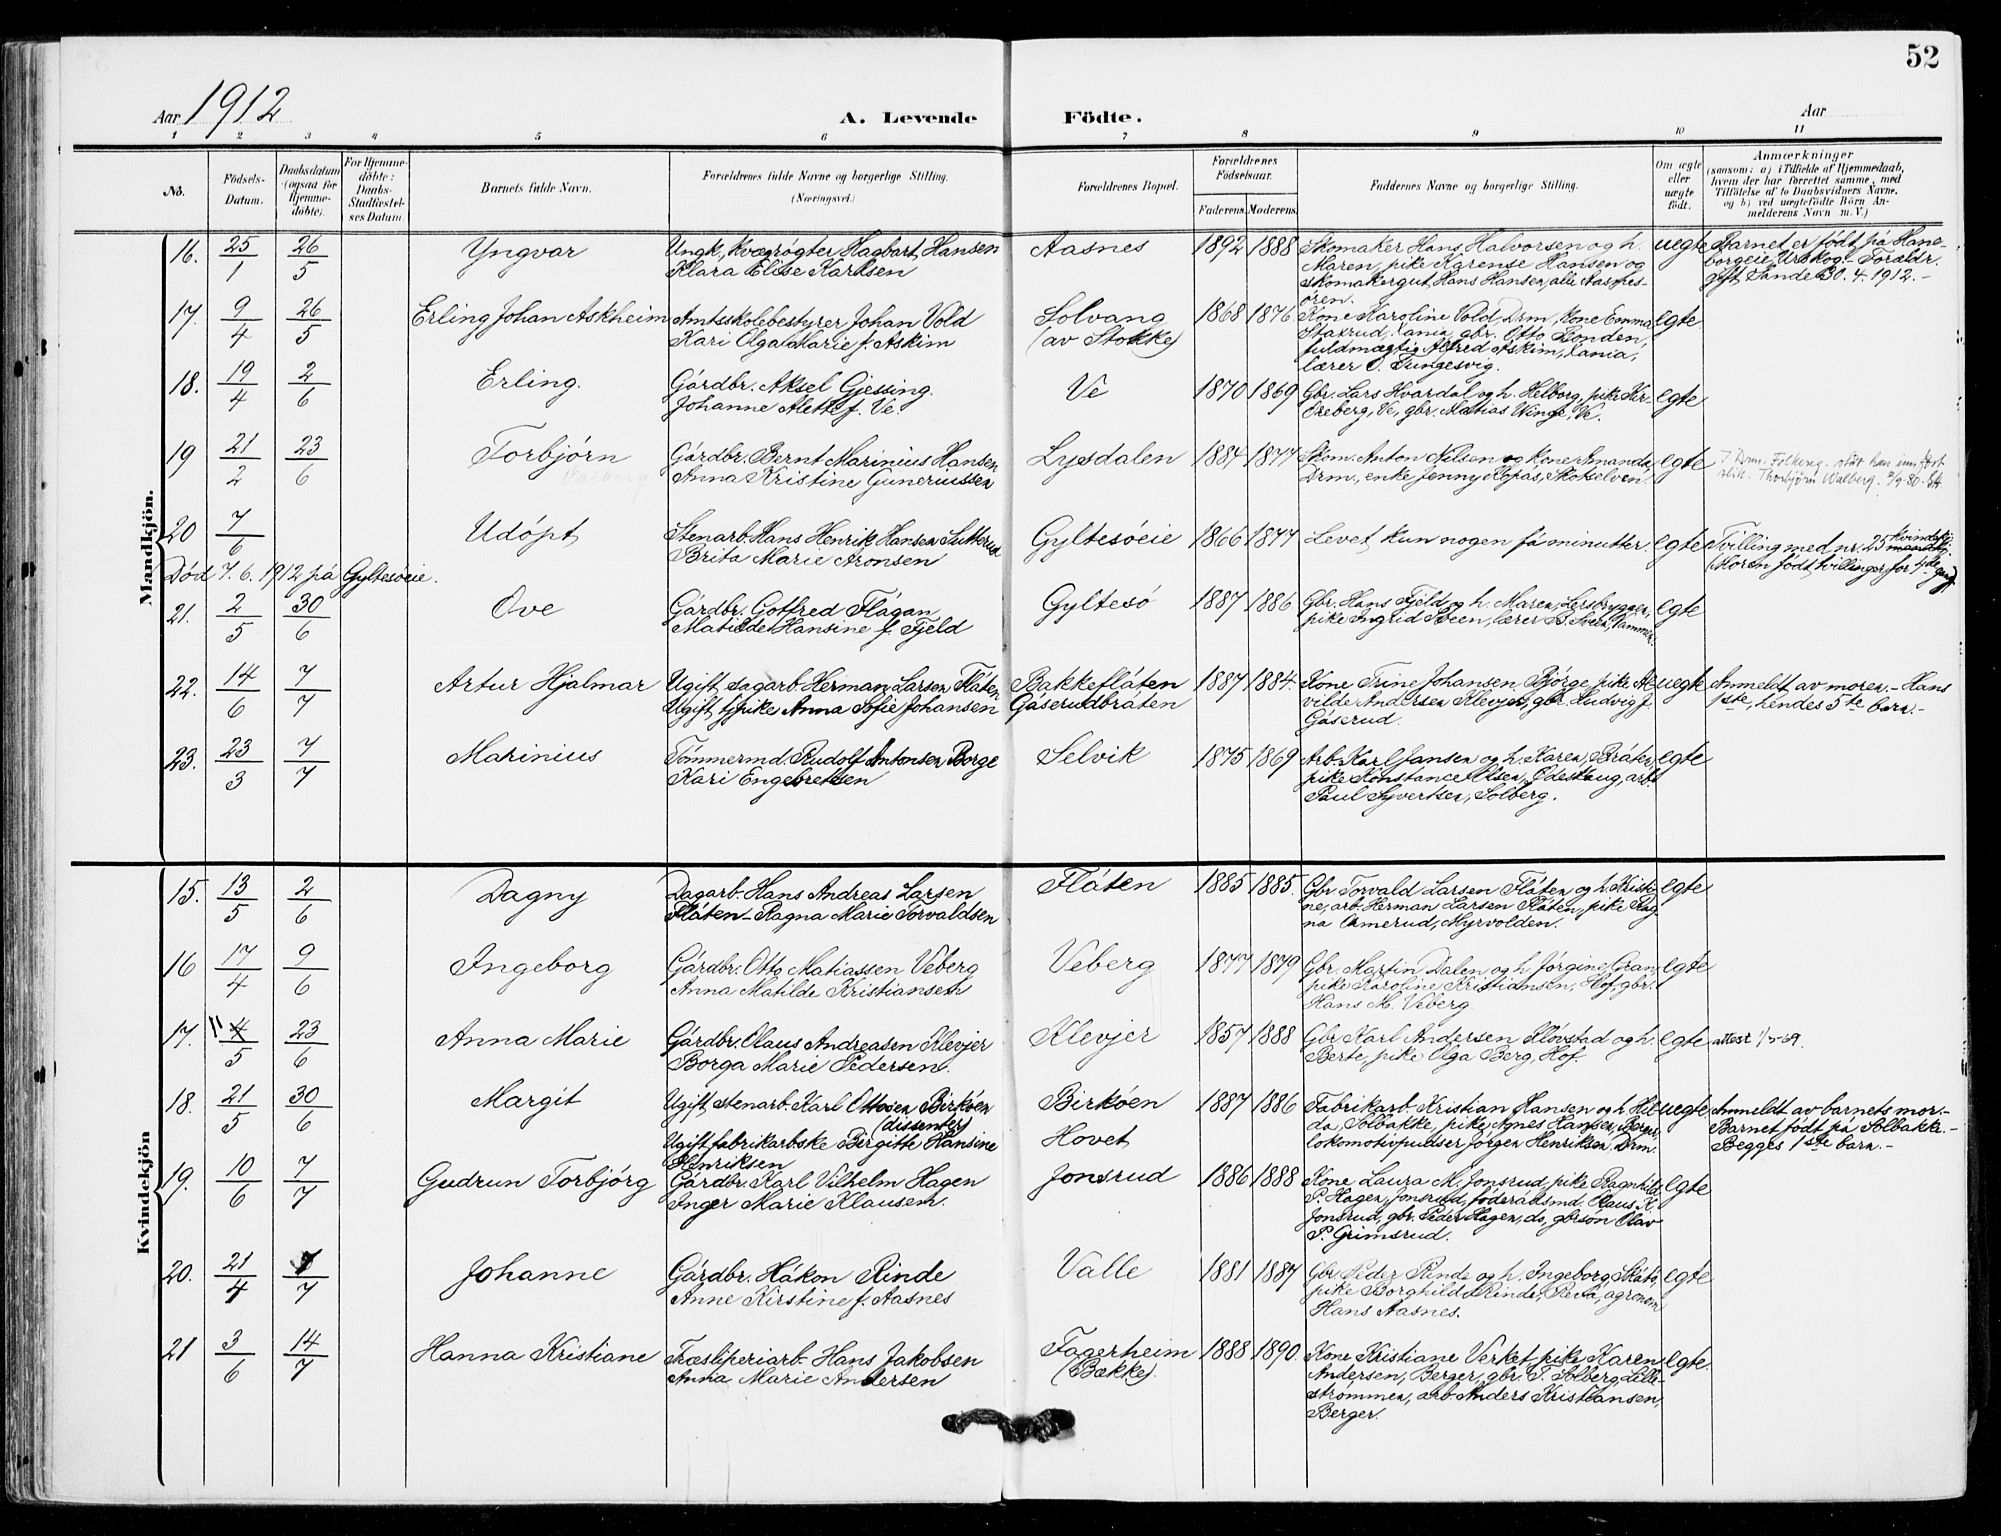 52
Aar 1912
A. Levende Födte.
Aar
1 2 3 4 5 6 7 8 9 10 11
No.
Födsels-
Datum.
Daabsdatum
(ogsaa for
Hjemme-
döbte).
For Hjemme-
döbte:
Daabs-
Stadfæstel-
ses Datum.
Barnets fulde Navn.
Forældrenes fulde Navne og borgerlige Stilling.
(Næringsvei.)
Forældrenes Bopæl.
Forældrenes
Födselsaar.
Faderens. Moderens.
Faddernes Navne og borgerlige Stilling.
Om ægte
eller
uægte
født.
Anmærkninger
(saasom: a) i Tilfælde af Hjemmedaab,
hvem der har forrettet samme, med
Tilföielse af to Daabsvidners Navne,
og b) ved uægtefödte Börn An-
melderens Navn m. V.)
Mandkjön.
16. 25/1 26/5 Yngvar
Ungk., kvægrøgter Hagbart Hansen
Klara Elise Karlsen
Aasnes 1892 1888
Skomaker Hans Halvorsen og h.
Maren, pike Karense Hansen og
skomakergut Hans Hansen, alle Aasnes-
ören.
uegte
Barnet er født på Hane-
borgeie Urskog. - Forældr.
gift Sande 30. 4. 1912. -
17. 9/4 26/5 Erling Johan Askheim
Amtsskolebestyrer Johan Vold
Kari Olga Marie f. Askim
Solvang
(av Stokke)
1868 1876
Kone Karoline Vold, Drm, kone Emma
Staxrud, Tania, gbr. Otto Ronden,
fuldmægtig Alfred Askim, Tania,
lærer O. Tungesvig.
egte
18. 19/4 2/6 Erling.
Gårdbr. Aksel Gjessing.
Johanne Alette f. Ve.
Ve 1870 1869
Gbr. Lars Hvardal og h. Helborg, pike Kir.
Exeberg, Ve, gbr. Matias Winge, Ve.
egte
19 21/2 23/6 Torbjörn
Gårdbr. Bernt Marinius Hansen
Anna Kristine Guneriussen
Lysdalen 1884 1877
Skom. Anton Nilsen og kone Amanda,
Drm., enke Jenny Kopås, Skotselven.
egte
I Drm. Folkereg. står han innført
slik. Thorbjørn Walberg.
20 7/6 Udöpt
Stenarb. Hans Henrik Hansen Sutterud
Brita Marie Aronsen
Gyltesöeie 1866 1877
Levet kun nogen få minutter.
egte
Tvilling med nr. 25 kvindekj.
(Moren født tvillinger for 4de gang)
Død 7. 6. 1912 på Gyltesöeie.
21. 2/5 30/6 Ove
Gårdbr. Gotfred Flågan
Matilde Hansine f. Fjeld
Gyltesö 1887 1886
Gbr. Hans Fjeld og h. Maren, Lersbryggen,
pike Ingrid Sveen, lærer B. Sveen, Vammen.
egte
22. 14/6 7/7 Artur Hjalmar
Ugift, sagarb. Herman Larsen Flåten
Ugift tj.pike Anna Sofie Johansen
Bakkeflåten
Gåserudbråten
1887 1884.
Kone Trine Johansen, Bjørge, pike Al-
vilde Andersen Klevjer, gbr. Ludvig J.
Gåserud.
uegte
Anmeldt av moren. - Hans
1ste, hendes 5te barn. -
23. 23/3 7/7 Marinius
Tömmermd. Rudolf Antonsen Borge
Kari Engebretsen
Selvik 1875 1869
Arb. Karl Jansen og h. Karen, Bråten,
pike Konstance Olsen, Edeshaug, arb.
Paul Syvertsen, Solberg.
egte
Kvindekjön
15. 13/5 2/6 Dagny
Dagarb. Hans Andreas Larsen
Flåten - Ragna Marie Torvaldsen
Flåten 1885 1885.
Gbr Torvald Larsen Flåten og h. Kristi-
ne, arb. Herman Larsen Flåten, pike Rag-
na Åmerud, Myrvolden.
egte
16 17/4 9/6 Ingeborg
Gårdbr. Otto Matiassen Veberg
Anna Matilde Kristiansen
Veberg 1877 1879
Gbr. Martin Dalen og h Jörgine, Gran,
pike Karoline Kristiansen, Hof, gbr.
Hans M. Veberg.
egte
17. 11 4/5 23/6 Anna Marie
Gårdbr. Olaus Andreasen Klevjer
Borga Marie Pedersen.
Klevjer 1857 1888
Gbr Karl Andersen Kløvstad og h.
Berte, pike Olga Berg, Hof.
egte
attest 1/5-69.
18. 21/5 30/6 Margit
Ugift, stenarb. Karl Ottosen Birköen
(dissenter)
Ugift fabrikarbske Birgitte Hansine
Henriksen
Birköen
Hovet
1887 1886
Fabrikarb. Kristian Hansen og h. Hil-
da, Solbakke, pike Agnes Hansen, Berger,
lokomotivpudser Jörgen Henriksen, Drm.
uegte
Anmeldt av barnets mor. -
Barnet født på Solbakke. -
Begges 1ste barn. -
19. 10/6 7/7 Gudrun Torbjörg
Gårdbr. Karl Vilhelm Hagen
Inger Marie Klausen.
Jonsrud 1886 1888
Kone Laura M. Jonsrud, pike Ragnhild
P. Hagen, Jonsrud, föderåsmd. Olaus K.
Jonsrud, gbr. Peder Hagen, do, gbrsön Olav
P. Grimsrud.
egte
20. 21/4 7/7 Johanne
Gårdbr. Håkon Rinde
Anne Kirstine f. Aasnes
Valle 1881 1887
Gbr Peder Rinde og h. Ingeborg, Skåto,
pike Borghild Rinde, Revå, agronom
Hans Aasnes.
egte
21 3/6 14/7 Hanna Kristiane
Træsliperiarb. Hans Jakobsen
Anna Marie Andersen
Fagerheim
(Bække).
1888 1890.
Kone Kristiane Verket, pike Karen
Andersen, Berger, gbr. T. Solberg, Lille-
strømmen, arb. Anders Kristiansen,
Berger.
egte.